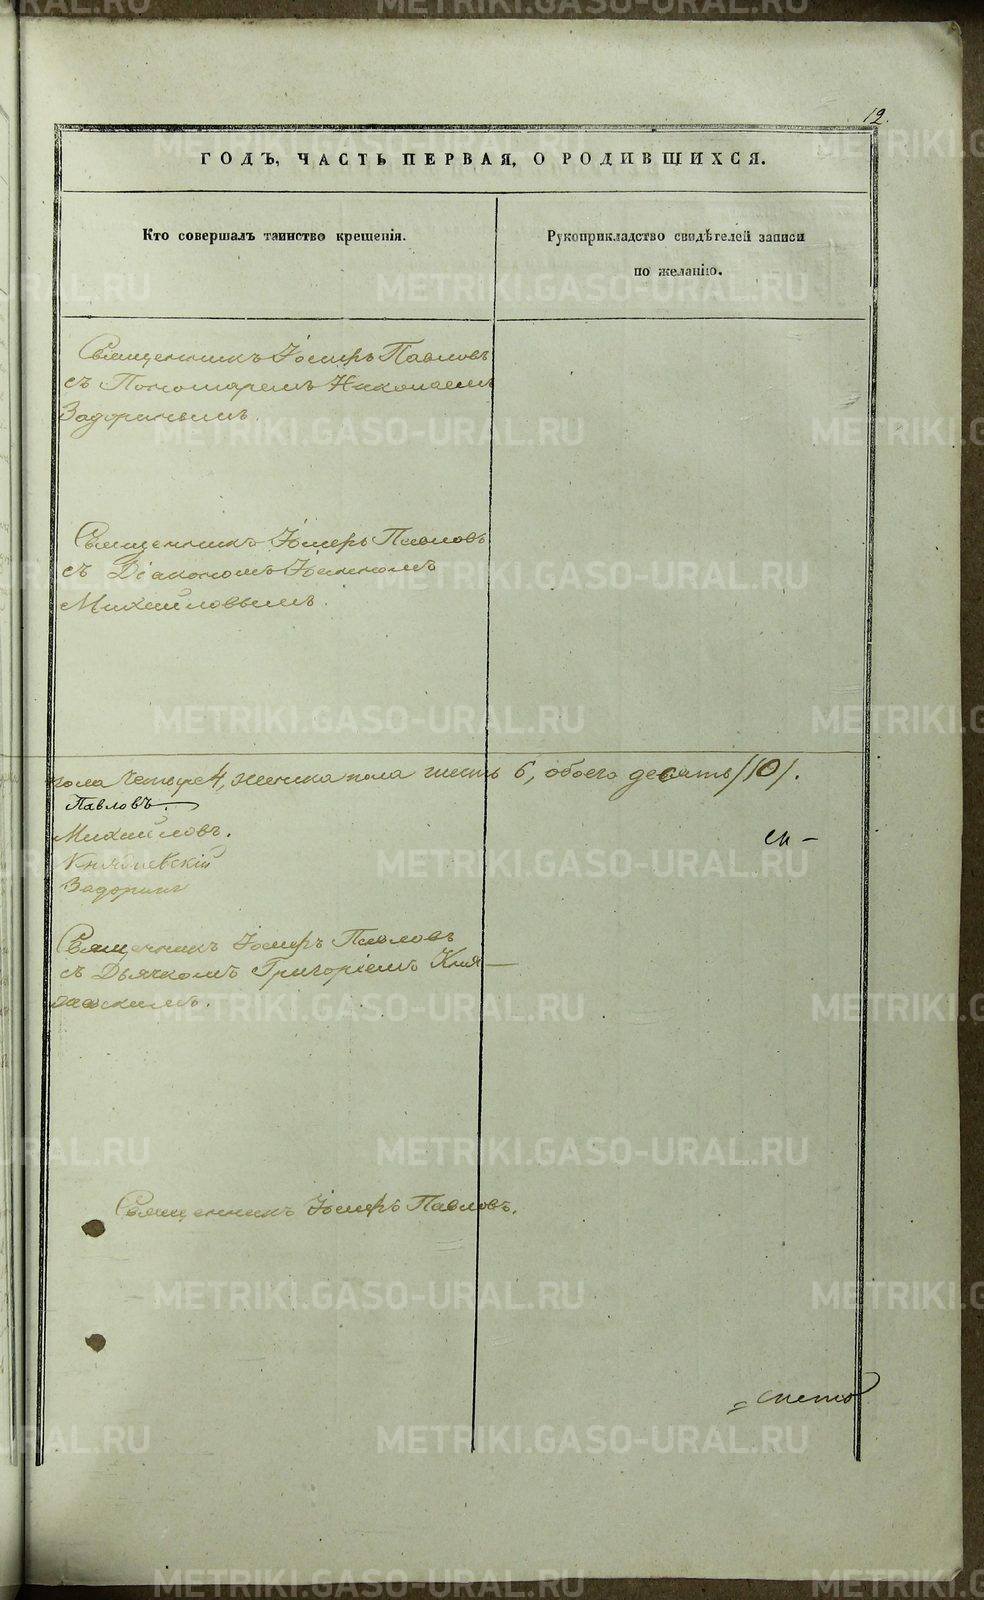 12.
ГОДЪ, ЧАСТЬ ПЕРВАЯ, О РОДИВШИХСЯ.
Кто совершалъ таинство крещенія.
Рукоприкладство свидѣтелей записи
по желанію.
Священникъ Іосифъ Павловъ
съ Пономаремъ Николаемъ
Задоринымъ.
Священникъ Іосифъ Павловъ
съ Діакономъ Іоанномъ
Михайловымъ.
пола четыре 4, женска пола шесть 6, обоего десять /10/.
Павловъ.
Михайловъ.
Князевскій
Задоринъ
Священникъ Іосифъ Павловъ
съ Дьячкомъ Григоріемъ Кня
зевскимъ.
Священникъ Іосифъ Павловъ.
METRIKI.GASO-URAL.RU